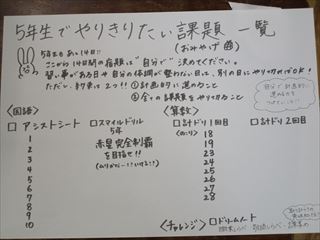 5年生でやりきりたい課題 一覧
(おみやげ 編)
5年生もあと14日!!
ここから14日間の宿題は"自分で"決めてください。
習い事がある日や自分の体調が整わない日は、別の日にやりきればOK!
ただし、約束は2つ!! ①計画的に進めること
②全ての課題をやりきること
自分で計画的に
進める力を
<国語>
□ アシストシート
1
2
3
4
5
6
7
8
9
10
□ スマイルドリル
5年
赤星完全制覇
を目指せ!!
<算数>
□ 計ドリ1回目
18
19
23
24
25
26
27
28
□ 計ドリ2回目
<チャレンジ> □ ドリームノート